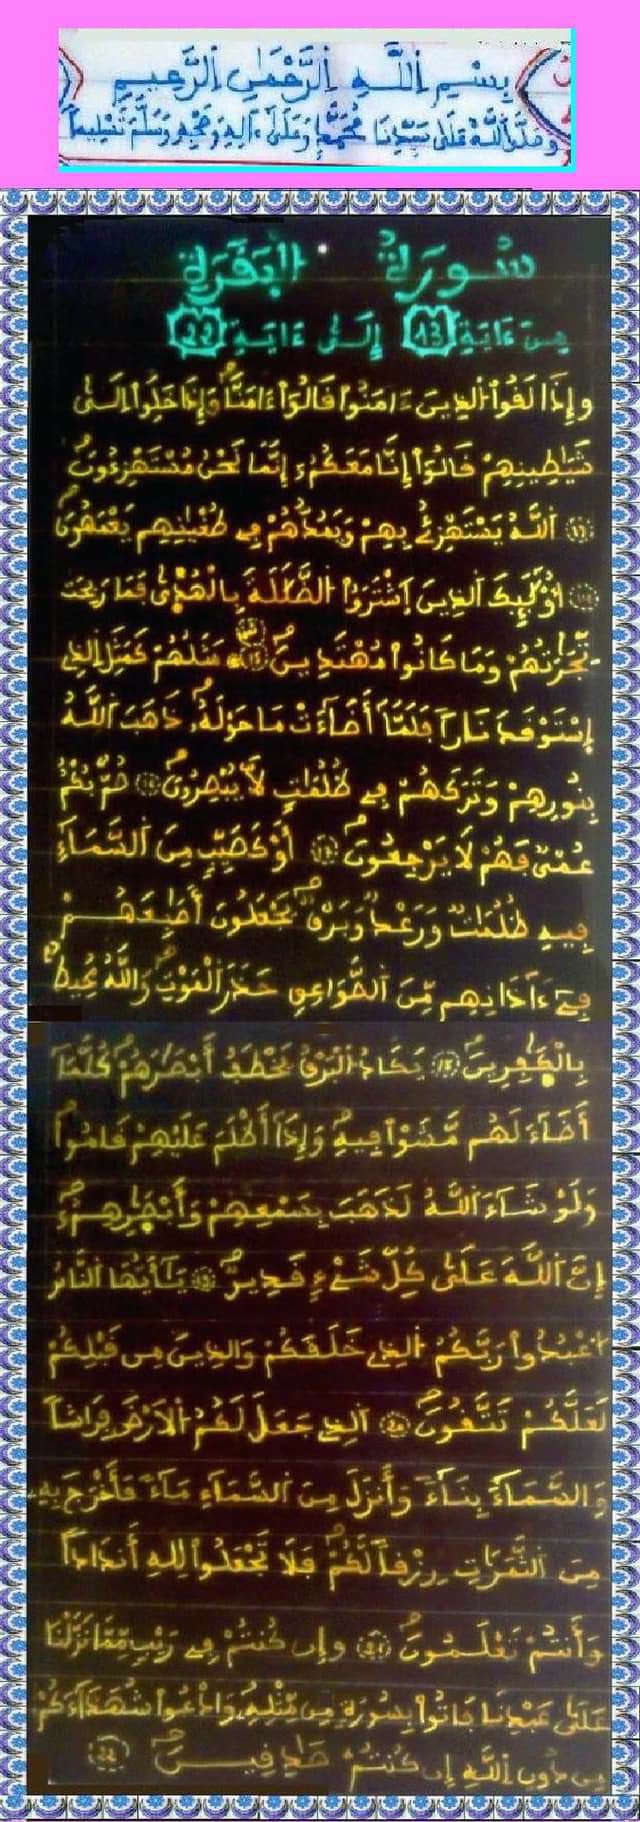 بِسْمِ اِللَّهِ اِلرَّحْمَٰنِ اِلرَّحِيمِ
وَصَلَّى اللَّهُ عَلَىٰ سَيِّدِنَا مُحَمَّدٍ وَعَلَىٰ ءَالِهِ وَصَحْبِهِ وَسَلَّمَ تَسْلِيماً
سُورَةُ الْبَقَرَةِ
مِنَ ءَايَةِ 13 إِلَىٰ ءَايَةِ 22
وَإِذَا لَقُوا اُلذِينَ ءَامَنُوا قَالُوا ءَامَنَّا وَإِذَا خَلَوِا اِلَىٰ
شَيَٰطِينِهِمْ قَالُوا إِنَّا مَعَكُمُۥ إِنَّمَا نَحْنُ مُسْتَهْزِءُونَ
اَللَّهُ يَسْتَهْزِئُ بِهِمْ وَيَمُدُّهُمْ فِي طُغْيَٰنِهِمْ يَعْمَهُونَ
أُوْلَٰئِكَ اَلذِينَ اَشْتَرَوُا اُلضَّلَٰلَةَ بِالْهُدَىٰ فَمَا رَبِحَت
تِّجَٰرَتُهُمْ وَمَا كَانُوا مُهْتَدِينَ 15 مَثَلُهُمْ كَمَثَلِ اِلذِي
اِسْتَوْقَدَ نَاراً فَلَمَّا أَضَاءَتْ مَا حَوْلَهُۥ ذَهَبَ اَللَّهُ
بِنُورِهِمْ وَتَرَكَهُمْ فِي ظُلُمَٰتٍ لَّا يُبْصِرُونَ 16 صُمٌّ بُكْمٌ
عُمْىٌ فَهُمْ لَا يَرْجِعُونَ 17 أَوْ كَصَيِّبٍ مِّنَ اَلسَّمَاءِ
فِيهِ ظُلُمَٰتٌ وَرَعْدٌ وَبَرْقٌ يَجْعَلُونَ أَصَٰبِعَهُمْ
فِي ءَاذَانِهِم مِّنَ اَلصَّوَٰعِقِ حَذَرَ اَلْمَوْتِ وَاللَّهُ مُحِيطٌ
بِالْكَٰفِرِينَ 18 يَكَادُ اُلْبَرْقُ يَخْطَفُ أَبْصَٰرَهُمْ كُلَّمَا
أَضَاءَ لَهُم مَّشَوْا فِيهِ وَإِذَا أَظْلَمَ عَلَيْهِمْ قَامُوا
وَلَوْ شَاءَ اَللَّهُ لَذَهَبَ بِسَمْعِهِمْ وَأَبْصَٰرِهِمْ
إِنَّ اَللَّهَ عَلَىٰ كُلِّ شَيْءٍ قَدِيرٌ 19 يَٰأَيُّهَا اَلنَّاسُ
اُعْبُدُوا رَبَّكُمُ اُلذِي خَلَقَكُمْ وَالذِينَ مِن قَبْلِكُمْ
لَعَلَّكُمْ تَتَّقُونَ 20 اَلذِي جَعَلَ لَكُمُ اُلْأَرْضَ فِرَٰشاً
وَالسَّمَاءَ بِنَاءً وَأَنزَلَ مِنَ اَلسَّمَاءِ مَاءً فَأَخْرَجَ بِهِۦ
مِنَ اَلثَّمَرَٰتِ رِزْقاً لَّكُمْ فَلَا تَجْعَلُوا لِلهِ أَندَاداً
وَأَنتُمْ تَعْلَمُونَ 21 وَإِن كُنتُمْ فِي رَيْبٍ مِّمَّا نَزَّلْنَا
عَلَىٰ عَبْدِنَا فَاتُوا بِسُورَةٍ مِّن مِّثْلِهِۦ وَادْعُوا شُهَدَاءَكُم
مِّن دُونِ اِللَّهِ إِن كُنتُمْ صَٰدِقِينَ 22